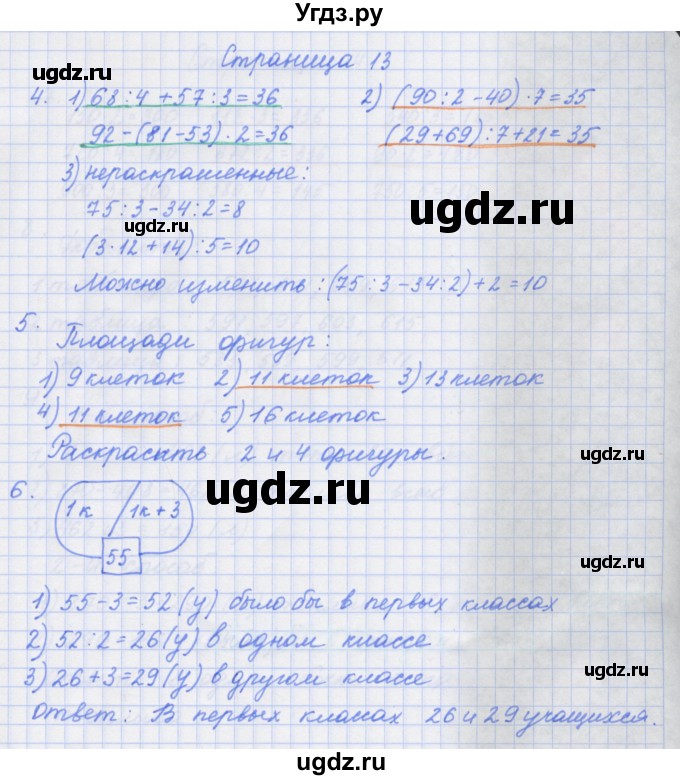 Угдз.ру
Страница 13
4. 1) 68:4+57:3=36
92-(81-53)·2=36
2) (90:2-40)·7=35
(29+69):7+21=35
3) нераскрашенные:
75:3-34:2=8
(3·12+14):5=10
Можно изменить: (75:3-34:2)+2=10
5. Площади фигур:
1) 9 клеток 2) 11 клеток 3) 13 клеток
4) 11 клеток 5) 16 клеток
Раскрасить 2 и 4 фигуры.
6. 1к / 1к+3
55
1) 55-3=52(у) было бы в первых классах
2) 52:2=26(у) в одном классе
3) 26+3=29(у) в другом классе
Ответ: В первых классах 26 и 29 учащихся.
ugdz.ru
ugdz.ru
ugdz.ru
ugdz.ru
ugdz.ru
ugdz.ru
ugdz.ru
ugdz.ru
ugdz.ru
ugdz.ru
ugdz.ru
ugdz.ru